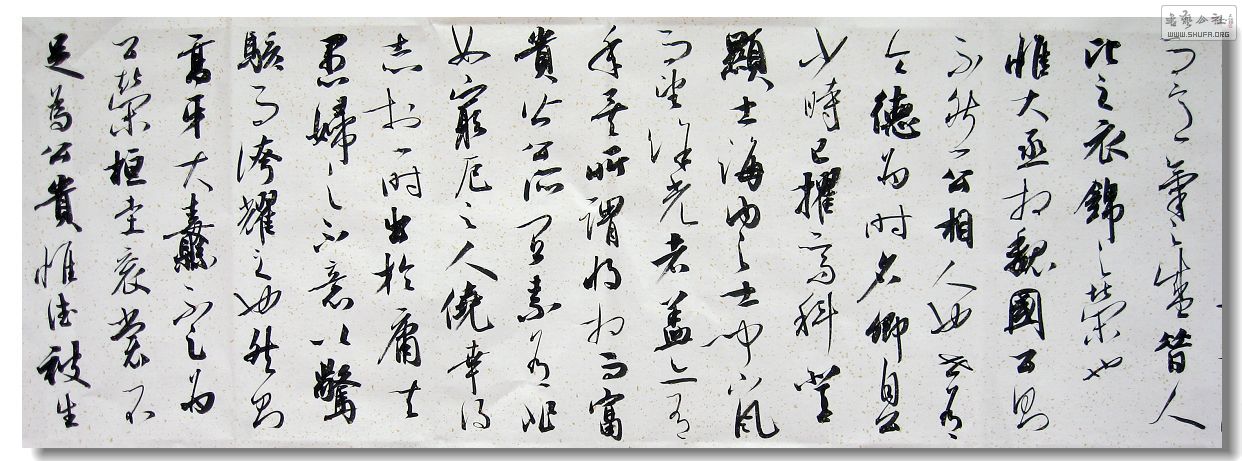 而意氣之盛昔人
比之衣錦之榮也
惟大丞相魏國公則
不然公相人也世有
令德為時名卿自公
少時已擢高科登
顯士海內之士聞下風
而望餘光者蓋亦有
年矣所謂將相而富
貴皆公所宜素有非
如窮厄之人僥幸得
志於一時出於庸夫
愚婦之不意以驚
駭而誇耀之也然則
高牙大纛不足為
公榮桓圭袞裳不
足為公貴惟德被生
書藝公社
WWW.SHUFA.ORG